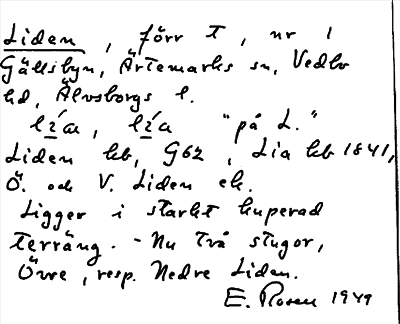 Liden, förr t, nr 1
Gällsbyn, Ärtemarks sn, Vedbo
hd, Älvsborgs l.
"på L."
Liden kb, G62, Lia kb 1841,
Ö. och V. Liden ek.
Ligger i starkt kuperad
terräng. - Nu två stugor,
Övre, resp. Nedre Liden.
E. Rosen 1949